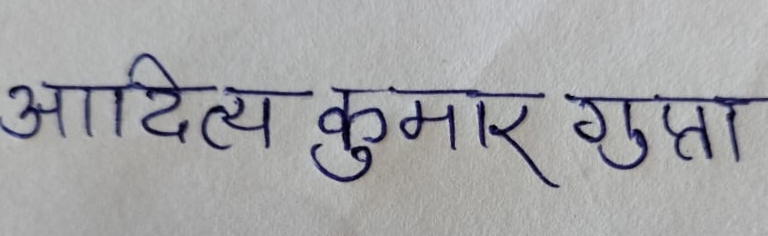 आदित्य कुमार गुप्ता